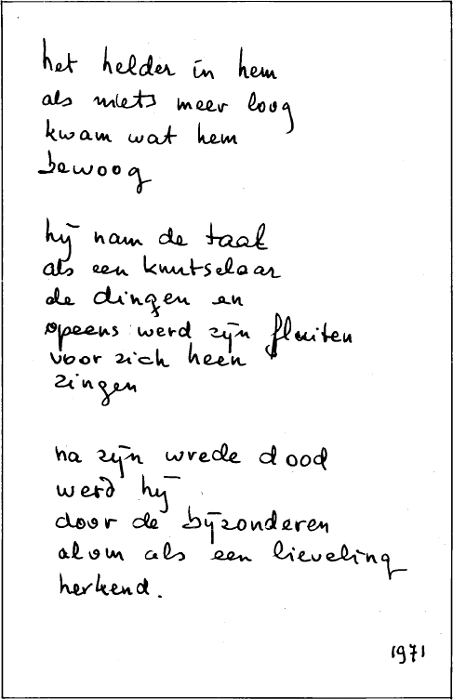 het helder in hem
als niets meer loog
kwam wat hem
bewoog
hij nam de taal
als een knutselaar
de dingen en
opeens werd zijn fluiten
voor zich heen
zingen
na zijn wrede dood
werd hij
door de bijzonderen
alom als een lieveling
herkend.
1971